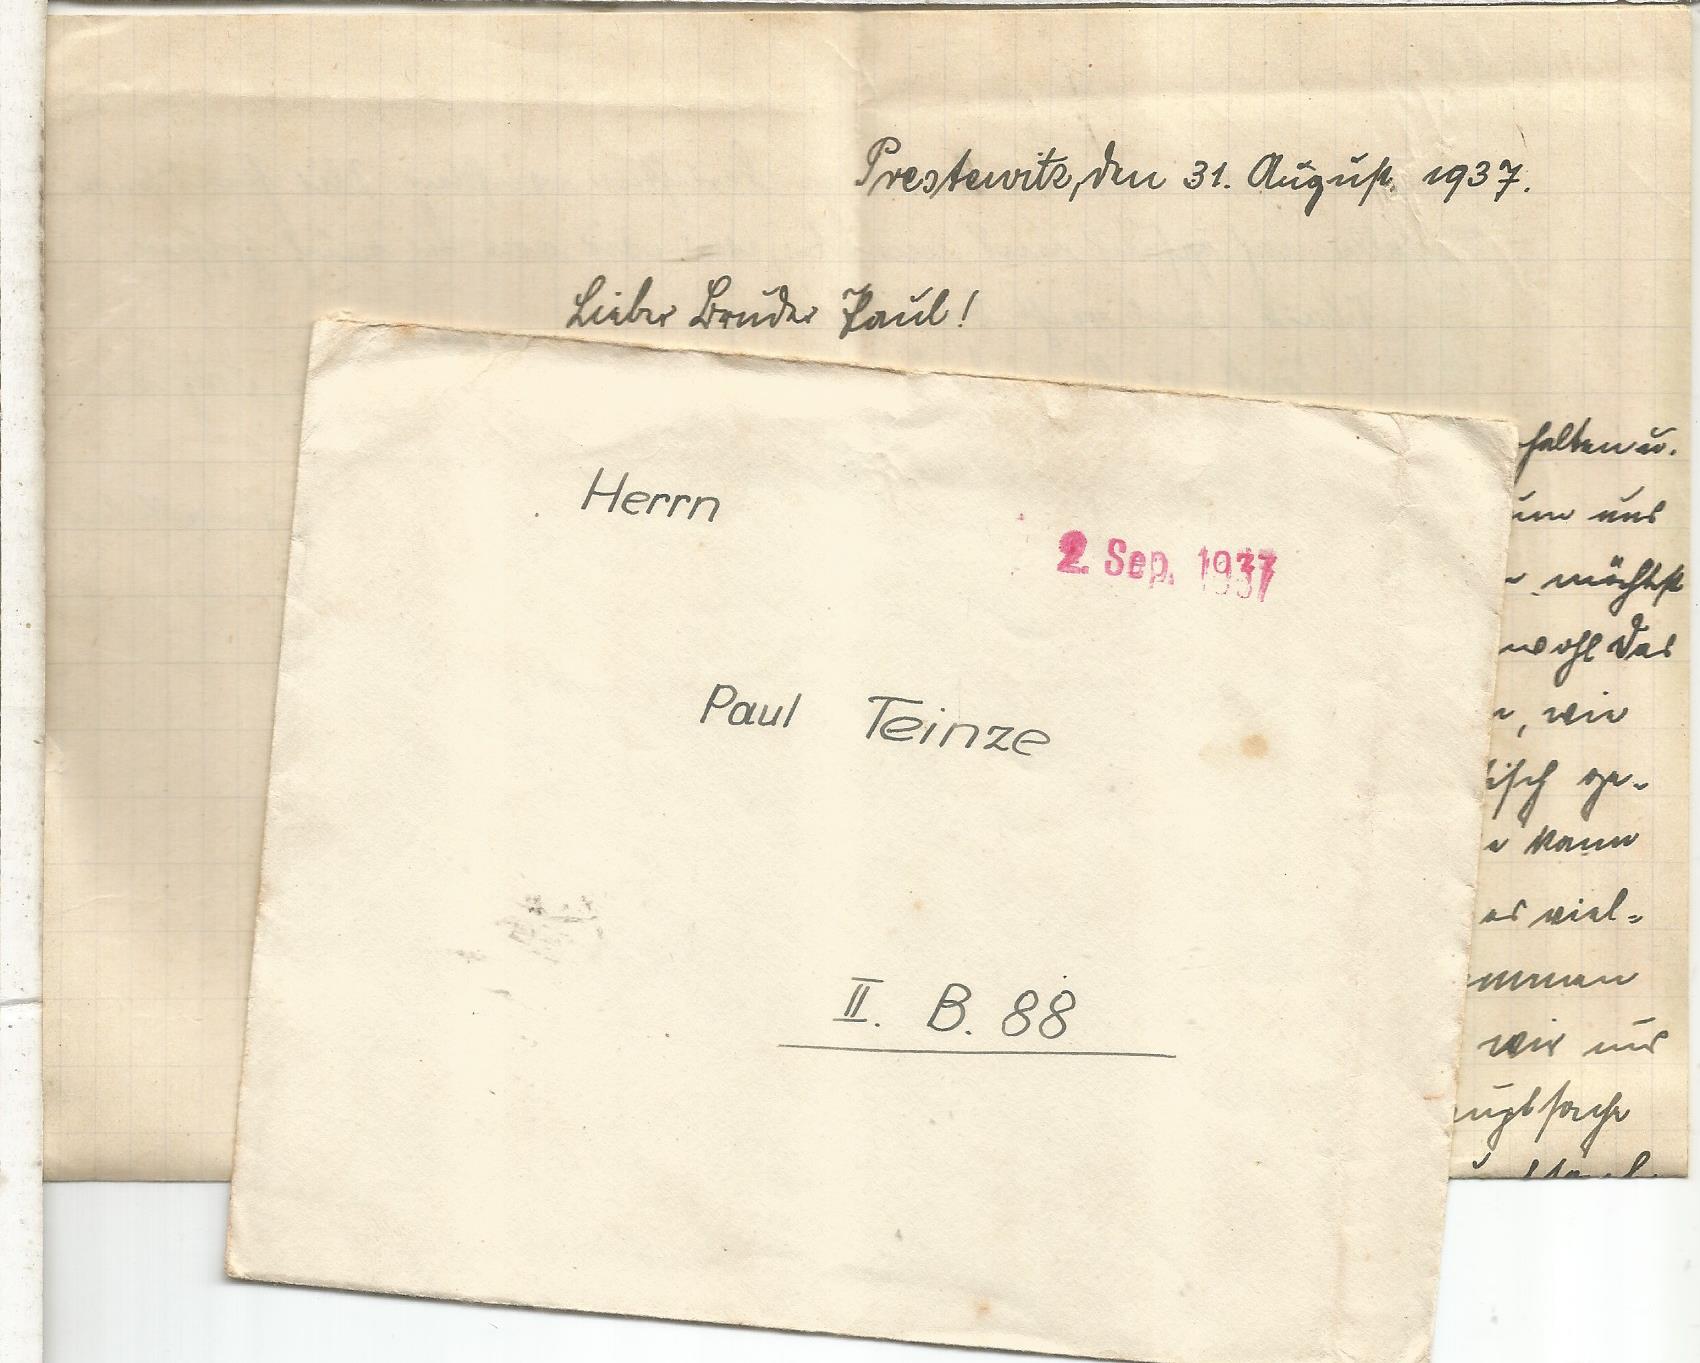 Prestewitz, den 31. August. 1937.
Lieber Bruder Paul!
halten u.
uns
möchtest
wohl das
, wie
isch ge-
kann
es viel-
ommen
wir uns
auptsache
Herrn
2. Sep. 1937
Paul Teinze
II. B. 88